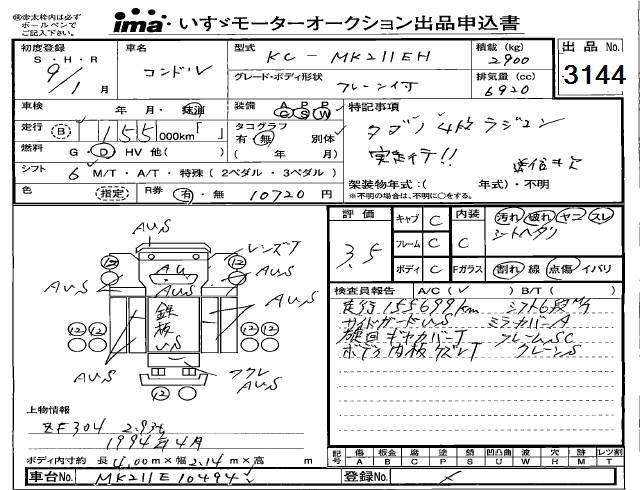 ㊟※太枠内は必ず
ボールペンで
ご記入下さい。
ima いすゞモーターオークション出品申込書
初度登録
S・H・R
9/1月
車名
コンドル
型式
KC-MK211EH
積載 (kg)
2900
グレード・ボディ形状
クレーン付
排気量 (cc)
6920
出品 No.
3144
車検 年 月・抹消
装備 A P P
C S W
特記事項
走行 B 155 000km「 」
タコグラフ
有 無 別体
タダノ 4段 ラジコン
燃料 G・D・HV 他( )
( 年 月)
実走行デ!!
シフト 6 M/T・A/T・特殊 (2ペダル・3ペダル)
架装物年式:( 年式)・不明
※不明の場合は、不明に○をする。
色 指定 R券 有・無 10720 円
評価
3.5
キャブ C
フレーム C
ボディ C
内装 C
Fガラス
汚れ 破れ ヤニ スレ
シートヘタリ
割れ 線 点傷 イバリ
検査員報告 A/C( ) B/T( )
走行155699km シフト6段M/T
サイドガードUS ミラーカバーA
クレームSC
クレーンS
AUS
レンズT
12
12
AU
AUS
AUS
AUS
鉄板
US
12 12
AUS
AUS
フクレ
AUS
12
上物情報
ZF304 2.93t
1994年4月
ボディ内寸約 長 4.00m×幅 2.14m×高 m
記号
傷 板金 腐 塗 錆 凹凸曲 波 穴 跡 無 レツ割
A B C P S U W H R M T
車台No. MK211E10494
登録No.